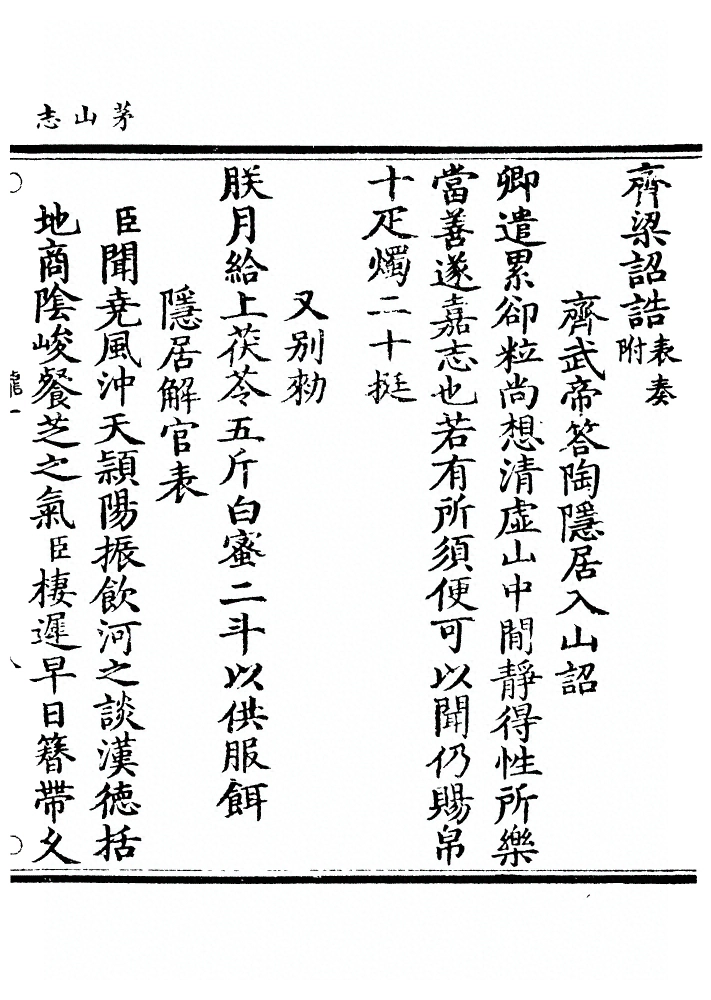 茅山志
齊梁詔誥表奏附
齊武帝答陶隱居入山詔
卿遣累卻粒尚想清虛山中閒靜得性所樂
當善遂嘉志也若有所須便可以聞仍賜帛
十疋燭二十挺
又別勑
朕月給上茯苓五斤白蜜二斗以供服餌
隱居解官表
臣聞堯風沖天頴陽振飲河之談漢德括
地商陰峻餐芝之氣臣棲遲早日簪帶久